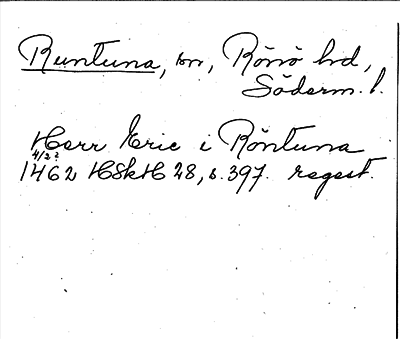 Runtuna, sn, Rönö hd,
Söderm. l.
Herr Eric i Röntuna
4/2 ?
1462 HSkH 28, s. 397. regest.